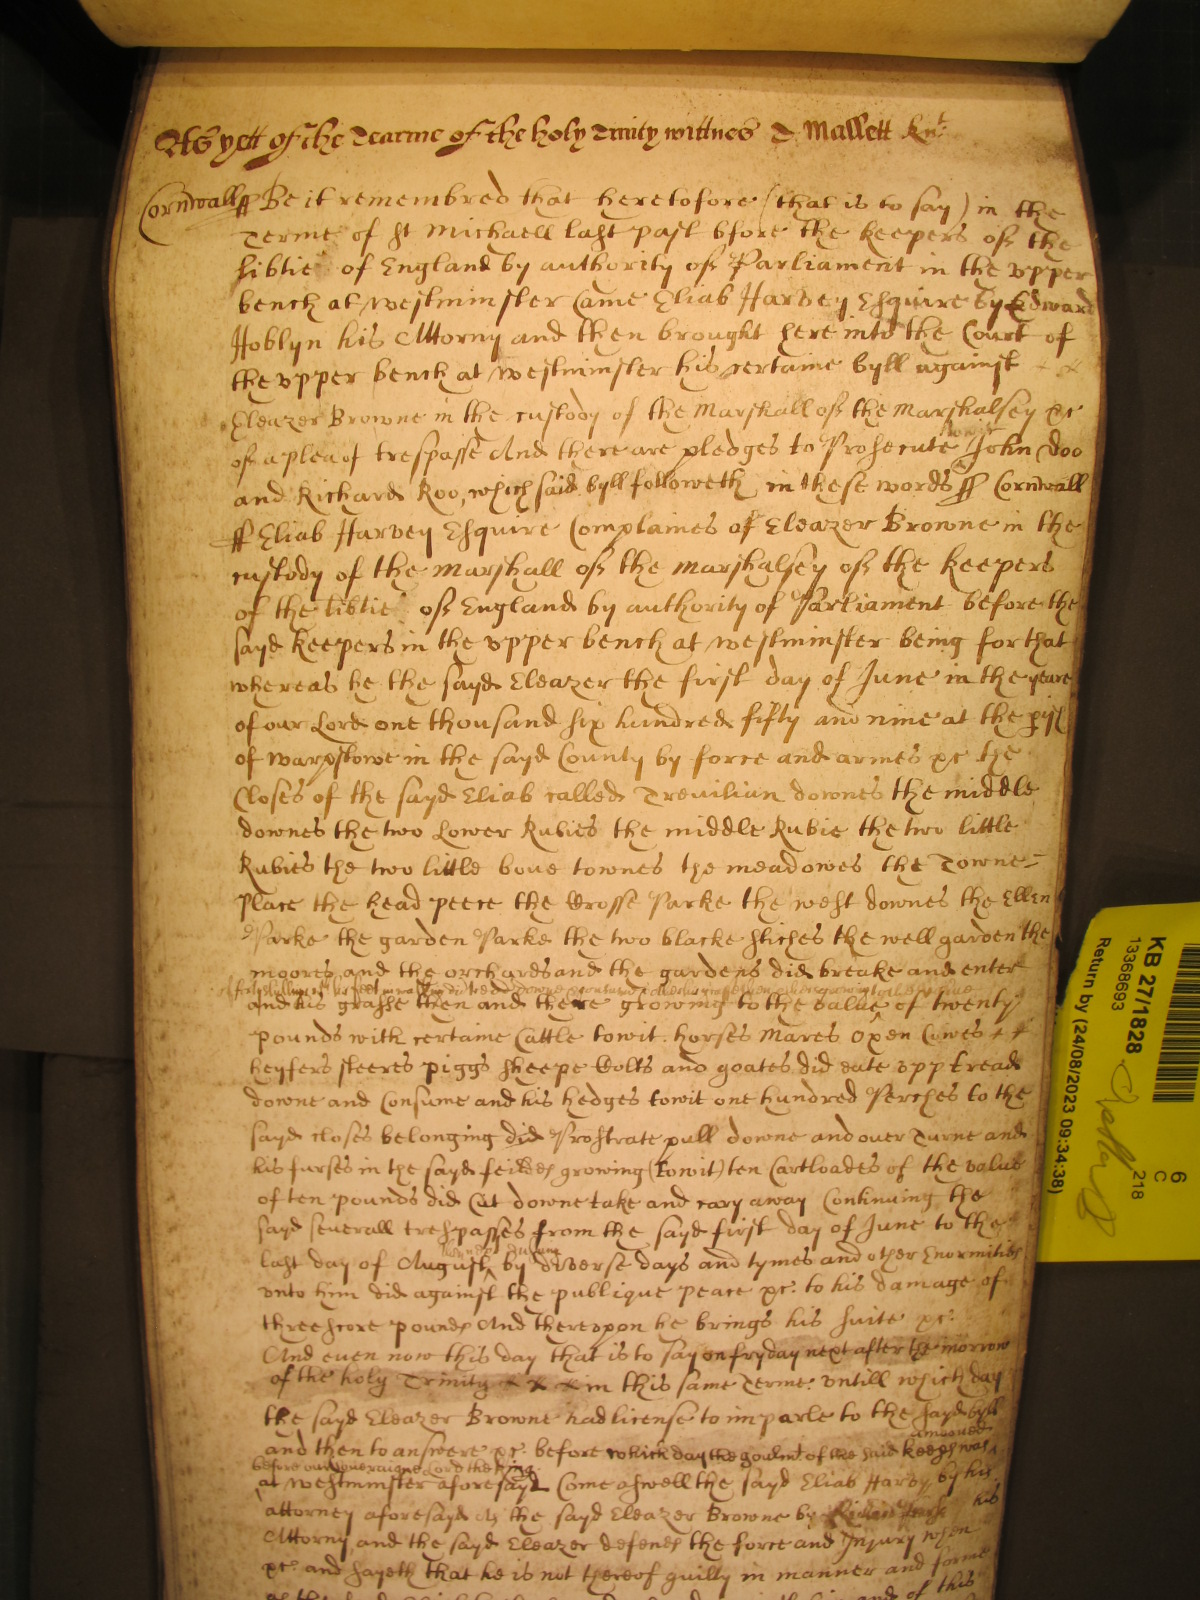 As yett of the Tearme of the holy Trinity wittnes T Mallett Knt
Cornwall ss Be it remembred that heretofore (that is to say) in the
Terme of St Michaell last past bfore the keepers of the
libtie of England by authority of Parliament in the vpper
bench at westminster Came Eliab Harvey Esquire by Edward
Hoblyn his Attorny and then brought here into the Court of
the vpper bench at westminster his certaine byll against
Eleazer Browne in the custody of the Marshall of the Marshalsey &c
of a plea of trespasse And there are pledges to Prosecute John Doo
and Richard Roo, which said byll followeth in these words ss Cornwall
ss Eliab Harvey Esquire Complaines of Eleazer Browne in the
custody of the Marshall of the Marshalsey of the keepers
of the libtie of England by authority of Parliament before the
sayd keepers in the vpper bench at westminster being for that
whereas he the sayd Eleazer the first day of June in the yeare
of our Lord one thousand six hundred fifty and nine at the pish
of warpstowe in the sayd County by force and armes &c the
Closes of the sayd Eliab called Trevilian downes the middle
downes the two Lower Rubies the middle Rubie the two little
Rubies the two little boue townes the meadowes the Towne=
place the head peece the Crosse Parke the west downes the Ellen
Parke the garden Parke the two blacke stiches the well garden the
moores and the orchards and the gardens did breake and enter
and his grasse then and there growing to the value of twenty
pounds with certaine Cattle towit horses Mares Oxen Cowes
heyfers steeres piggs sheepe Colts and goates did eate vpp tread
downe and Consume and his hedges towit one hundred Perches to the
sayd closes belonging did Prostrate pull downe and over Turne and
his furses in the sayd feilds growing (towit) ten Cartloades of the value
of ten pounds did Cut downe take and cary away Continuing the
sayd severall trespasses from the sayd first day of June to the
last day of August by diverse days and tymes and other Enormities
vnto him did against the publique peace &c. to his damage of
threescore pounds And therevpon he brings his suite &c.
And even now this day that is to say on fryday next after the morrow
of the holy Trinity in this same Terme. vntill which day
the sayd Eleazer Browne had license to imparle to the sayd byll
and then to answere &c. before which day the govmt of the said keeps was
amooved
before our Soueraigne Lord the king
at westminster aforesayd Come aswell the sayd Eliab Harvy by his
attorney aforesayd as the sayd Eleazer Browne by his
Attorny and the sayd Eleazer defends the force and Injury when
&c. and sayeth that he is not thereof guilty in manner and forme
KB 27/1828
13368693
Return by (24/08/2023 09:34:38)
6
C
218